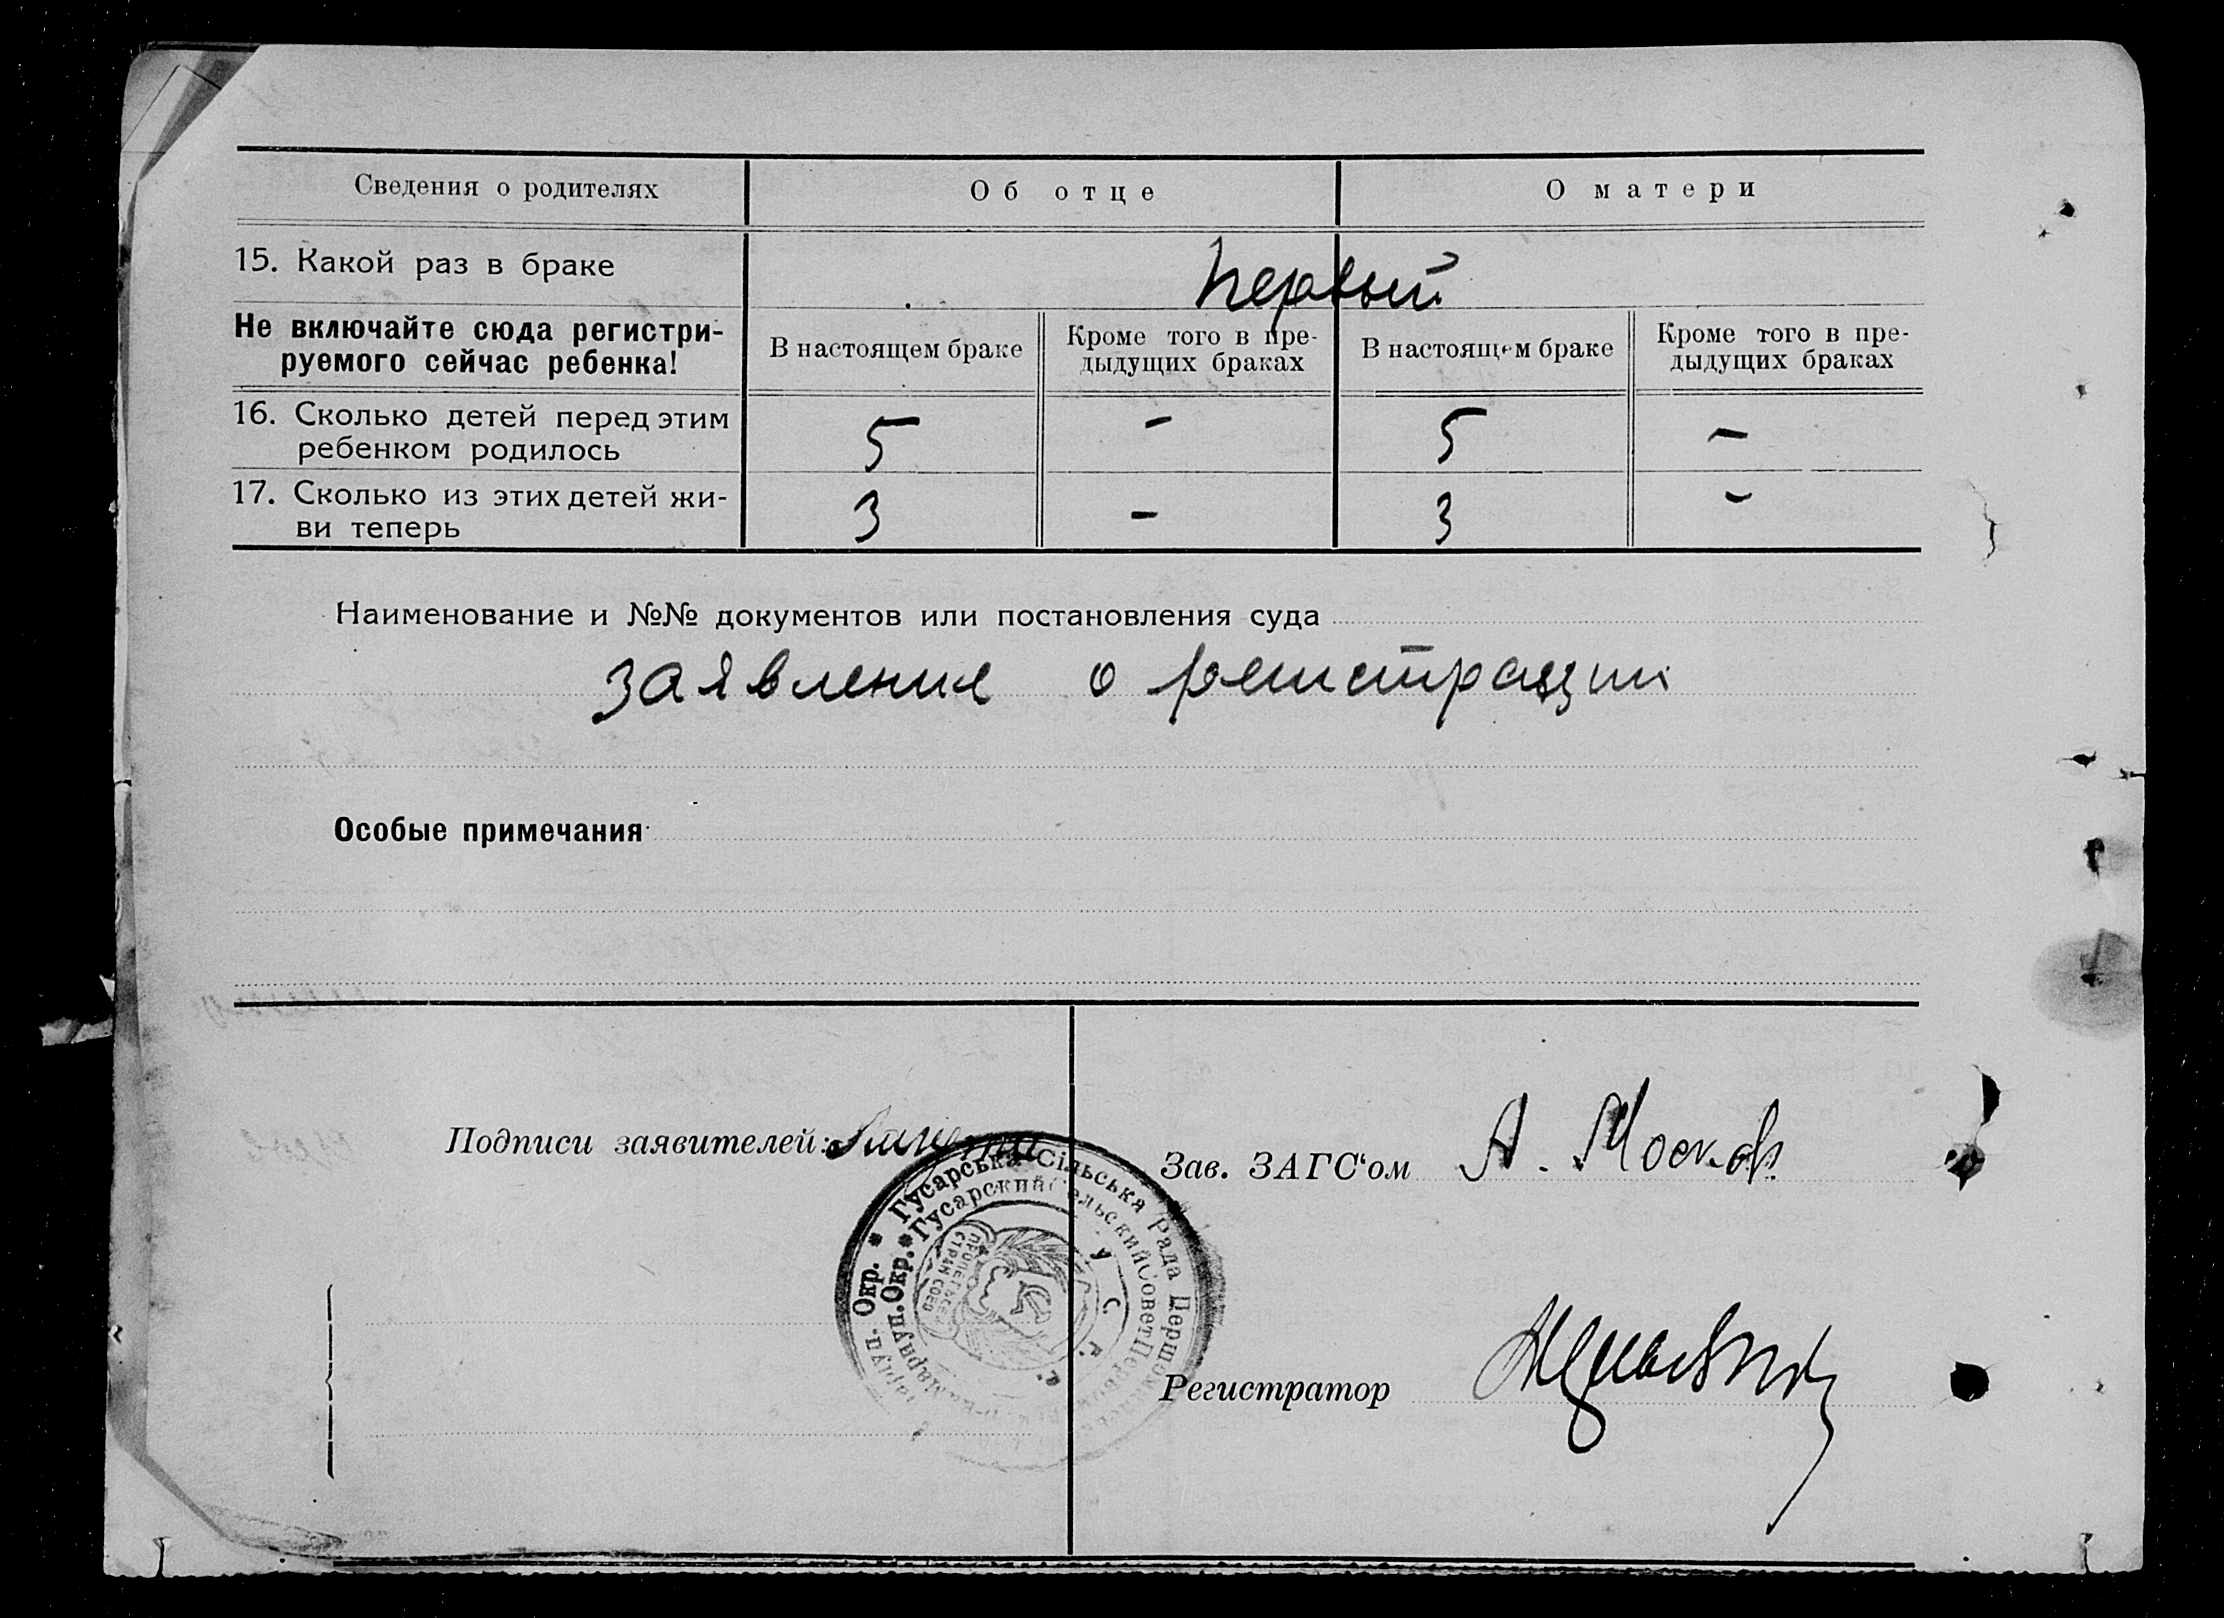 Сведения о родителях Об отце О матери
15. Какой раз в браке Первый
Не включайте сюда регистри-
руемого сейчас ребенка!
В настоящем браке
Кроме того в пре-
дыдущих браках
В настоящем браке
Кроме того в пре-
дыдущих браках
16. Сколько детей перед этим
ребенком родилось 5 - 5 -
17. Сколько из этих детей жи-
ви теперь 3 - 3 -
Наименование и №№ документов или постановления суда
заявление о регистрации
Особые примечания
Подписи заявителей:
Гусарська Сільська Рада Першома
Гусарский Сельский Совет Перво
Окр.
Окр.
У С Р.
Зав. ЗАГС'ом А.
Регистратор